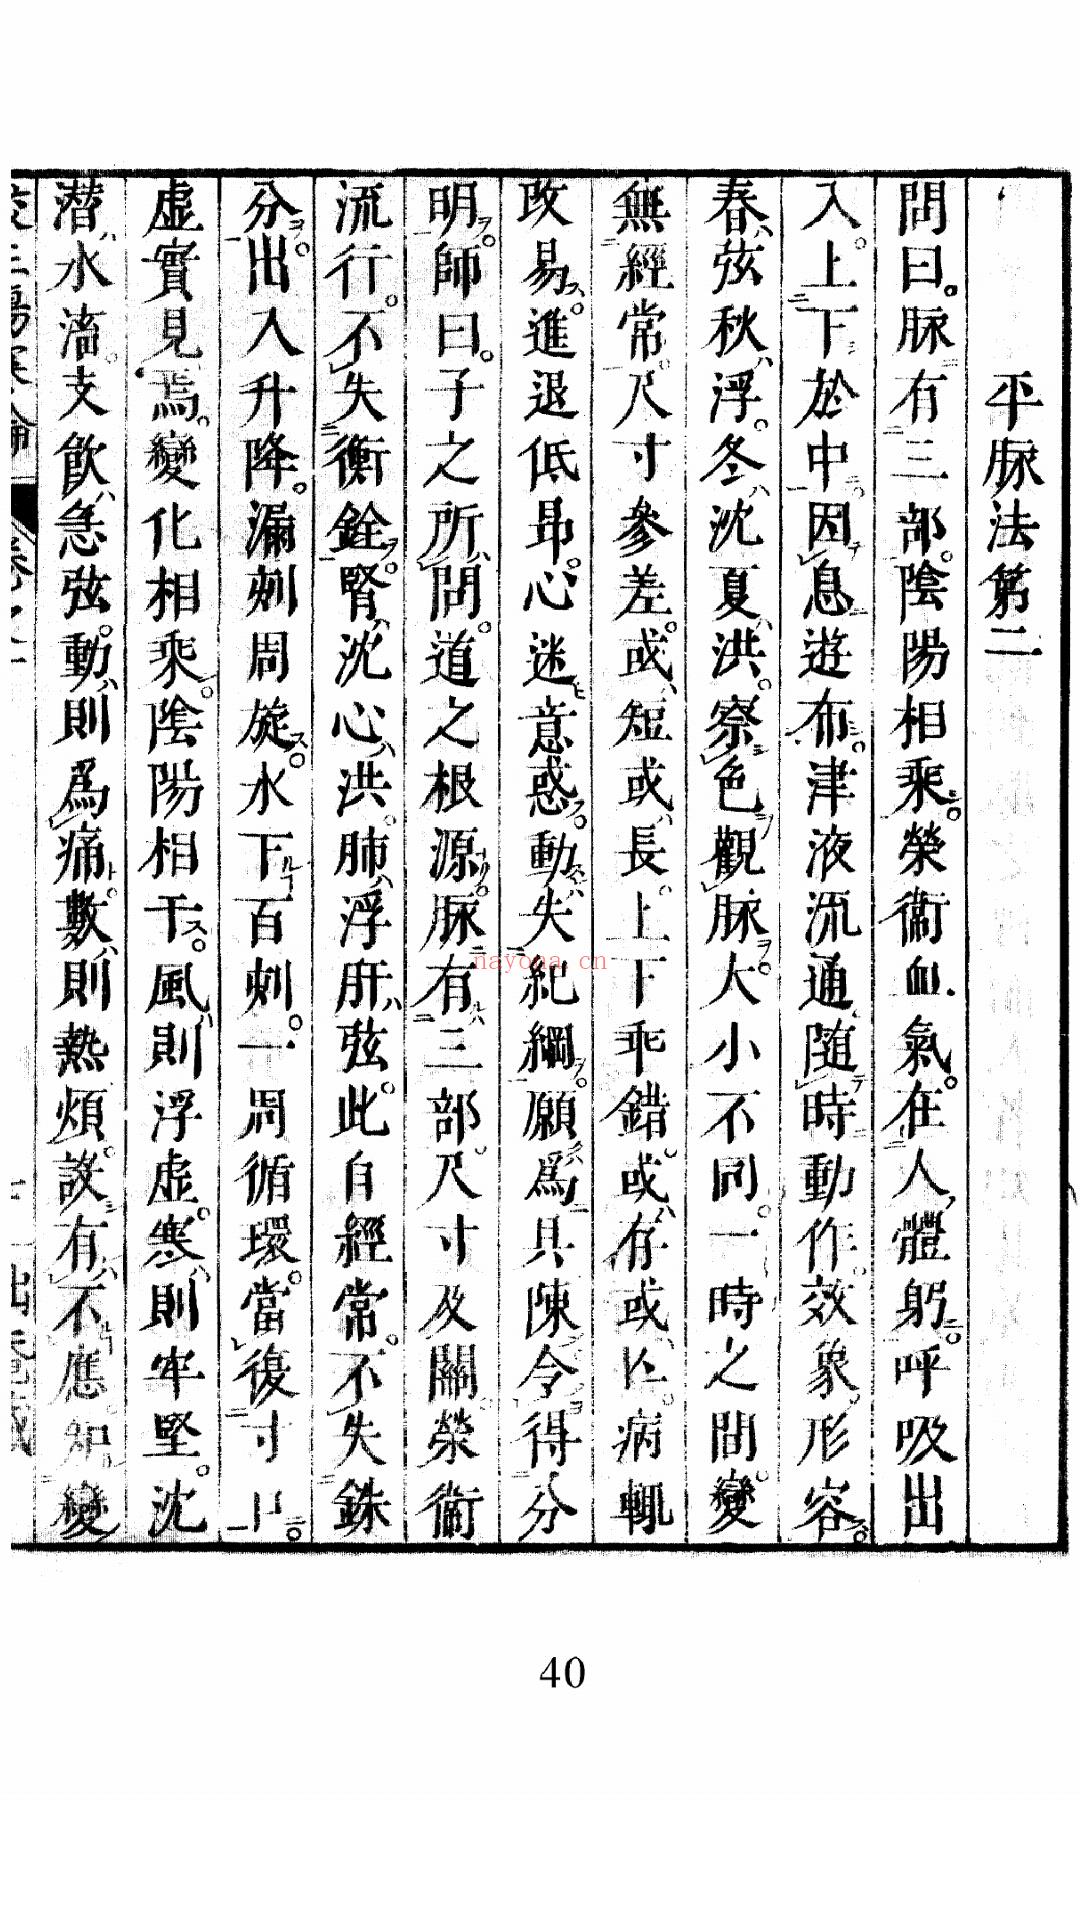 平脉法第二
問曰。脉有三部。陰陽相乘。榮衞血氣。在人體躬。呼吸出
入。上下於中。因息遊布。津液流通。隨時動作。效象形容。
春弦秋浮。冬沈夏洪。察色觀脉。大小不同。一時之間。變
無經常。尺寸參差。或短或長。上下乖錯。或存或亡。病輙
改易。進退低昂。心迷意惑。動失紀綱。願爲具陳。令得分
明。師曰。子之所問。道之根源。脉有三部。尺寸及關。榮衞
流行。不失衡銓。腎沈心洪。肺浮肝弦。此自經常。不失銖
分。出入升降。漏刻周旋。水下百刻。一周循環。當復寸口。
虛實見焉。變化相乘。陰陽相干。風則浮虛。寒則牢堅。沈
潛水滀。支飮急弦。動則爲痛。數則熱煩。設有不應。知變
nayona.cn
40